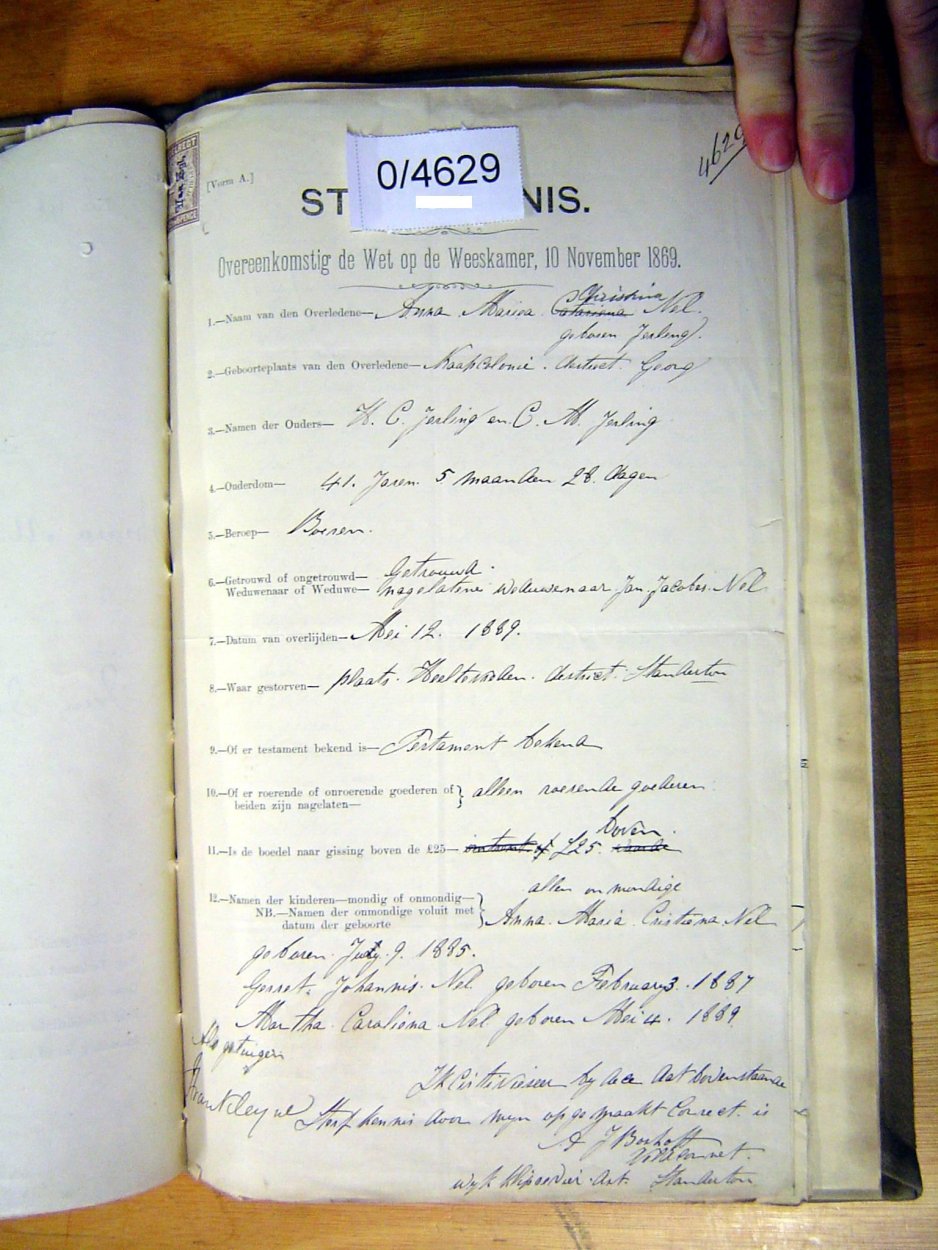 4629
0/4629
[Vorm A.]
ST NIS.
Overeenkomstig de Wet op de Weeskamer, 10 November 1869.
Christina
1.—Naam van den Overledene— Anna Maria Nel
geboren Jerling
2.—Geboorteplaats van den Overledene— Kaapcolonie district Georg
3.—Namen der Ouders— H. C. Jerling en C. M. Jerling
4.—Ouderdom— 41 Jaren 5 maanden 28 dagen
5.—Beroep— Boeren.
6.—Getrouwd of ongetrouwd— Getrouwd
Weduwenaar of Weduwe— nagelatene weduwenaar Jan Jacobus Nel
7.—Datum van overlijden— Mei 12. 1889.
8.—Waar gestorven— plaats district Standerton
9.—Of er testament bekend is— Testament bekend
10.—Of er roerende of onroerende goederen of } alleen roerende goederen
beiden zijn nagelaten—
boven
11.—Is de boedel naar gissing boven de £25— £25
allen onmondige
12.—Namen der kinderen—mondig of onmondig— }
NB.—Namen der onmondige voluit met
datum der geboorte
Anna Maria Cristiena Nel
geboren July 9. 1885.
Gerret Johannis Nel geboren February 3. 1887
Martha Caroliena Nel geboren Mei 4. 1889
Als getuigen
Ik by deze dat bovenstaande
Sterfkennis door myn opgemaakt Correct is
A J Boshoff
Veldcornet
wyk Kliprivier dist. Standerton